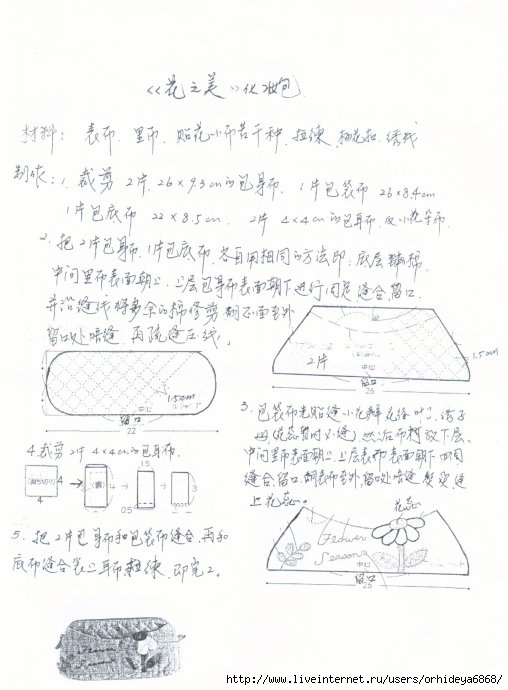 《花之美》化妆包
材料: 表布、里布、贴花小布若干种、拉练、梅花扣、绣线
制作: 1. 裁剪 2片 26×9.3cm的包身布、1片包袋布 26×8.4cm
1片包底布 22×8.5cm、2片 4×4cm的包耳布 及小花朵布。
2. 把2片包身布、1片包底布、各自用相同的方法即: 底层铺棉、
中间里布表面朝上、上层包身布表面朝下进行四周缝合、留口、
并沿缝线将多余的棉修剪 翻正面至外
留口处暗缝、再疏缝压线。
2片
中心
1.5cm
留口
28
中心
1.5cm
留口
22
3. 包袋布先贴缝小花瓣
然后布棉放下层、
中间里布表面朝上、上层表布表面朝下四周
缝合、留口、翻表布至外、留口处暗缝
上花蕊。
4. 裁剪 2片 4×4cm的包耳布。
4
4
4
1.5
0.5
3
5. 把2片包身布和包袋布缝合、再和
底布缝合装上耳布拉练、即完工。
花蕊
Flower
Seasons
中心
留口
25
http://www.liveinternet.ru/users/orhideya6868/